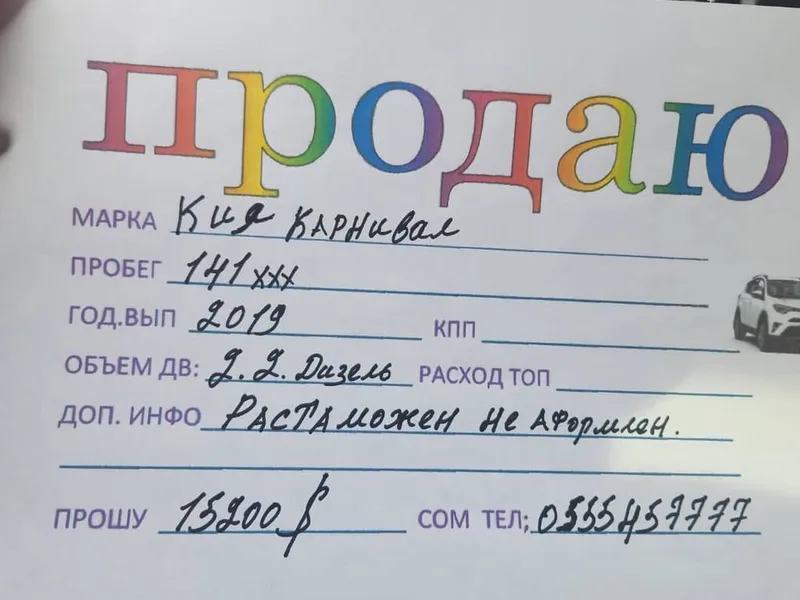 продаю
МАРКА Кия Карнивал
ПРОБЕГ 141xxx
ГОД.ВЫП 2019 КПП
ОБЪЕМ ДВ: 2.2. Дизель РАСХОД ТОП
ДОП. ИНФО Растаможен не аформлен.
ПРОШУ 15200 $ СОМ ТЕЛ; 0555457777